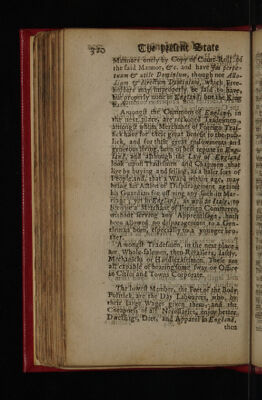 320 The present State
Mannors onely by Copy of Court-Roll of
the said Mannor, &c. and have jus perpe-
tuum & utile Dominium, though not Allo-
dium & directum Dominium, which Free-
holders may improperly be said to have,
but properly none in England but the King
hath.
Amongst the Commons of England, in
the next place, are reckoned Tradesmen,
amongst whom Merchants of Forreign Traf-
fick have for their great Benefit to the pub-
lick, and for their great endowments and
generous living, been of best repute in Eng-
land; and although the Law of England
look upon Tradesmen and Chapmen, that
live by buying and selling, as a baser sort of
People, and that a Ward within age, may
bring his Action of Disparagement against
his Guardian for offering any such in Mar-
riage; yet in England, as well as Italy, to
become a Merchant of Forreign Commerce,
without serving any Apprentisage, hath
been allowed no disparagement to a Gen-
tleman born, especially to a younger bro-
ther.
Amongst Tradesmen, in the next place,
are Whole-salemen, then Retailers; lastly,
Mechanicks or Handicraftsmen. These are
all capable of bearing some Sway or Office
in Cities and Towns Corporate.
The lowest Member, the Feet of the Body
Politick, are the Day Labourers, who, by
their large Wages given them, and the
Cheapness of all Necessaries, enjoy better
Dwellings, Diet, and Apparel in England,
then